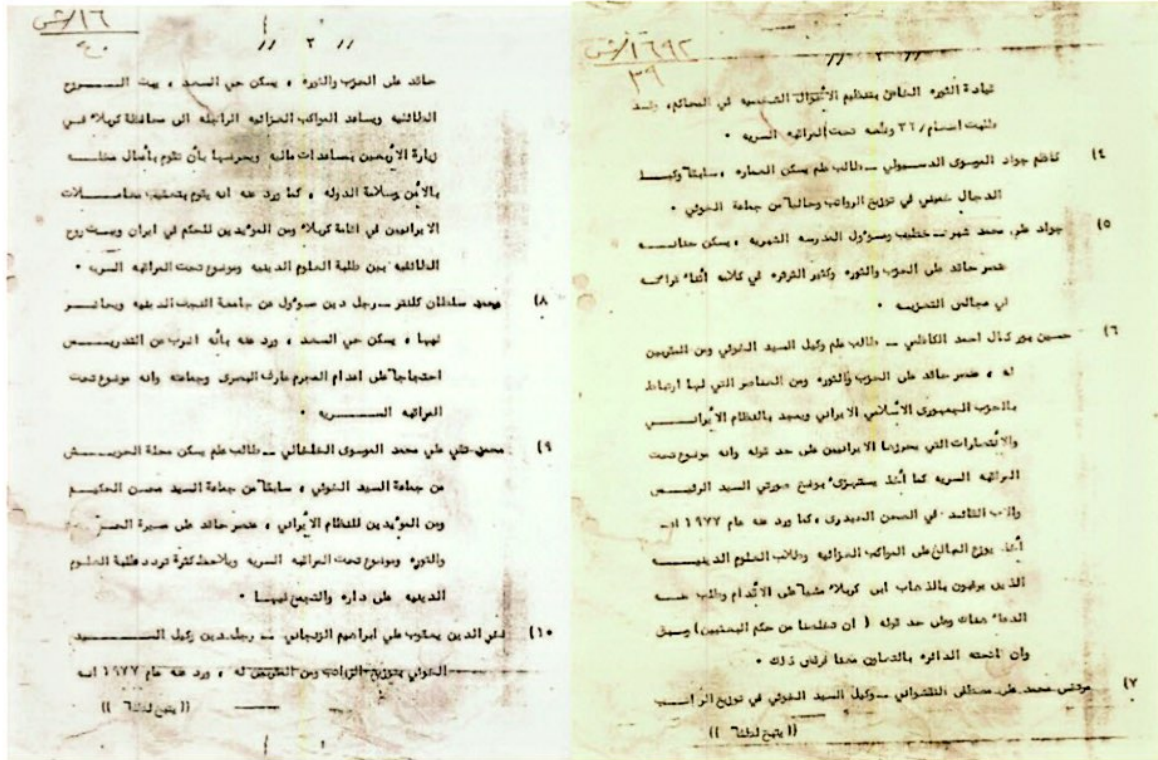 ١٦٩٢/ش
٣٩
// ٢ //
قيادة الثوره الخاص بتنظيم الأحوال الشخصيه في المحاكم، وقد
انضمام/٣٦ وضعه تحت المراقبه السريه .
٤) كاظم جواد الموسوي ــ طالب علم يسكن العماره ، سابقا وكيل
الدجال خميني في توزيع الرواتب وحاليا من جماعة الخوئي .
٥) جواد علي محمد شبر ــ خطيب ومسؤول المدرسه الشبريه ، يسكن حنانه
عنصر حاقد على الحزب والثوره وكثير الثرثره في كلامه أثناء
في مجالس التعزيه .
٦) حسين بور كمال احمد الكاظمي ــ طالب علم وكيل السيد الخوئي ومن المقربين
له ، عنصر حاقد على الحزب والثوره ومن العناصر التي لها ارتباط
بالحزب الجمهوري الأسلامي الايراني ويمجد بالنظام الأيراني
والأنتصارات التي يحرزها الايرانيين على حد قوله وانه موضوع تحت
المراقبه السريه كما أخذ يستهزئ بوضع صورتي السيد الرئيس
والاب القائد في الصحن الحيدري ، كما ورد عنه عام ١٩٧٧ انه
أخذ يوزع المبالغ على المواكب العزائيه وطلاب العلوم الدينيه
الذين يرغبون بالذهاب الى كربلاء مشيا على الأقدام وطلب منه
الدعاء هناك وعلى حد قوله ( ان تخلصنا من حكم البعثيين) وسبق
وان فاتحته الدائره بالتعاون معنا فرفض ذلك .
٧) مرتضى محمد علي مصطفى النقشواني ــ وكيل السيد الخوئي في توزيع الرواتب
(( يتبع لطفا ))
١٦/ش
// ٣ //
حاقد على الحزب والثوره ، يسكن حي السعد ، يبث الروح
الطائفيه ويساعد المواكب العزائيه الراجله الى محافظة كربلاء في
زيارة الأربعين بمساعدات ماليه ويحرضها بأن تقوم بأعمال مخله
بالأمن وسلامة الدوله ، كما ورد عنه انه يقوم بتعقيب معاملات
الايرانيين في اقامة كربلاء ومن المؤيدين للحكم في ايران ويبث روح
الطائفيه بين طلبة العلوم الدينيه وموضوع تحت المراقبه السريه .
٨) محمد سلطان كلنتر ــ رجل دين مسؤول عن جامعة النجف الدينيه ويحاضر
فيها ، يسكن حي السعد ، ورد عنه بأنه اضرب عن التدريس
احتجاجا على اعدام المجرم عارف البصري وجماعته وانه موضوع تحت
المراقبه السريه .
٩) محمد تقي علي محمد الموسوي الخلخالي ــ طالب علم يسكن محلة الحويش
من جماعة السيد الخوئي ، سابقا من جماعة السيد محسن الحكيم
ومن المؤيدين للنظام الأيراني ، عنصر حاقد على مسيرة الحزب
والثوره وموضوع تحت المراقبه السريه ويلاحظ كثرة تردد طلبة العلوم
الدينيه على داره والتجمع فيها .
١٠) فخر الدين يعقوب علي ابراهيم الزنجاني ــ رجل دين وكيل السيد
الخوئي بتوزيع الرواتب ومن المقربين له ، ورد عنه عام ١٩٧٧ انه
(( يتبع لطفا ))